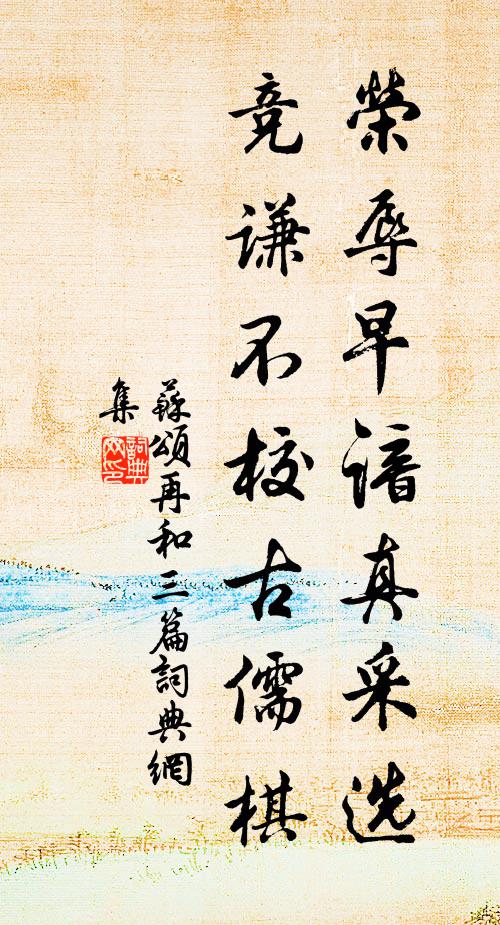 榮辱早谙真采选
竞谦不校古儒棋
蘇頌再和三篇詞典網
集